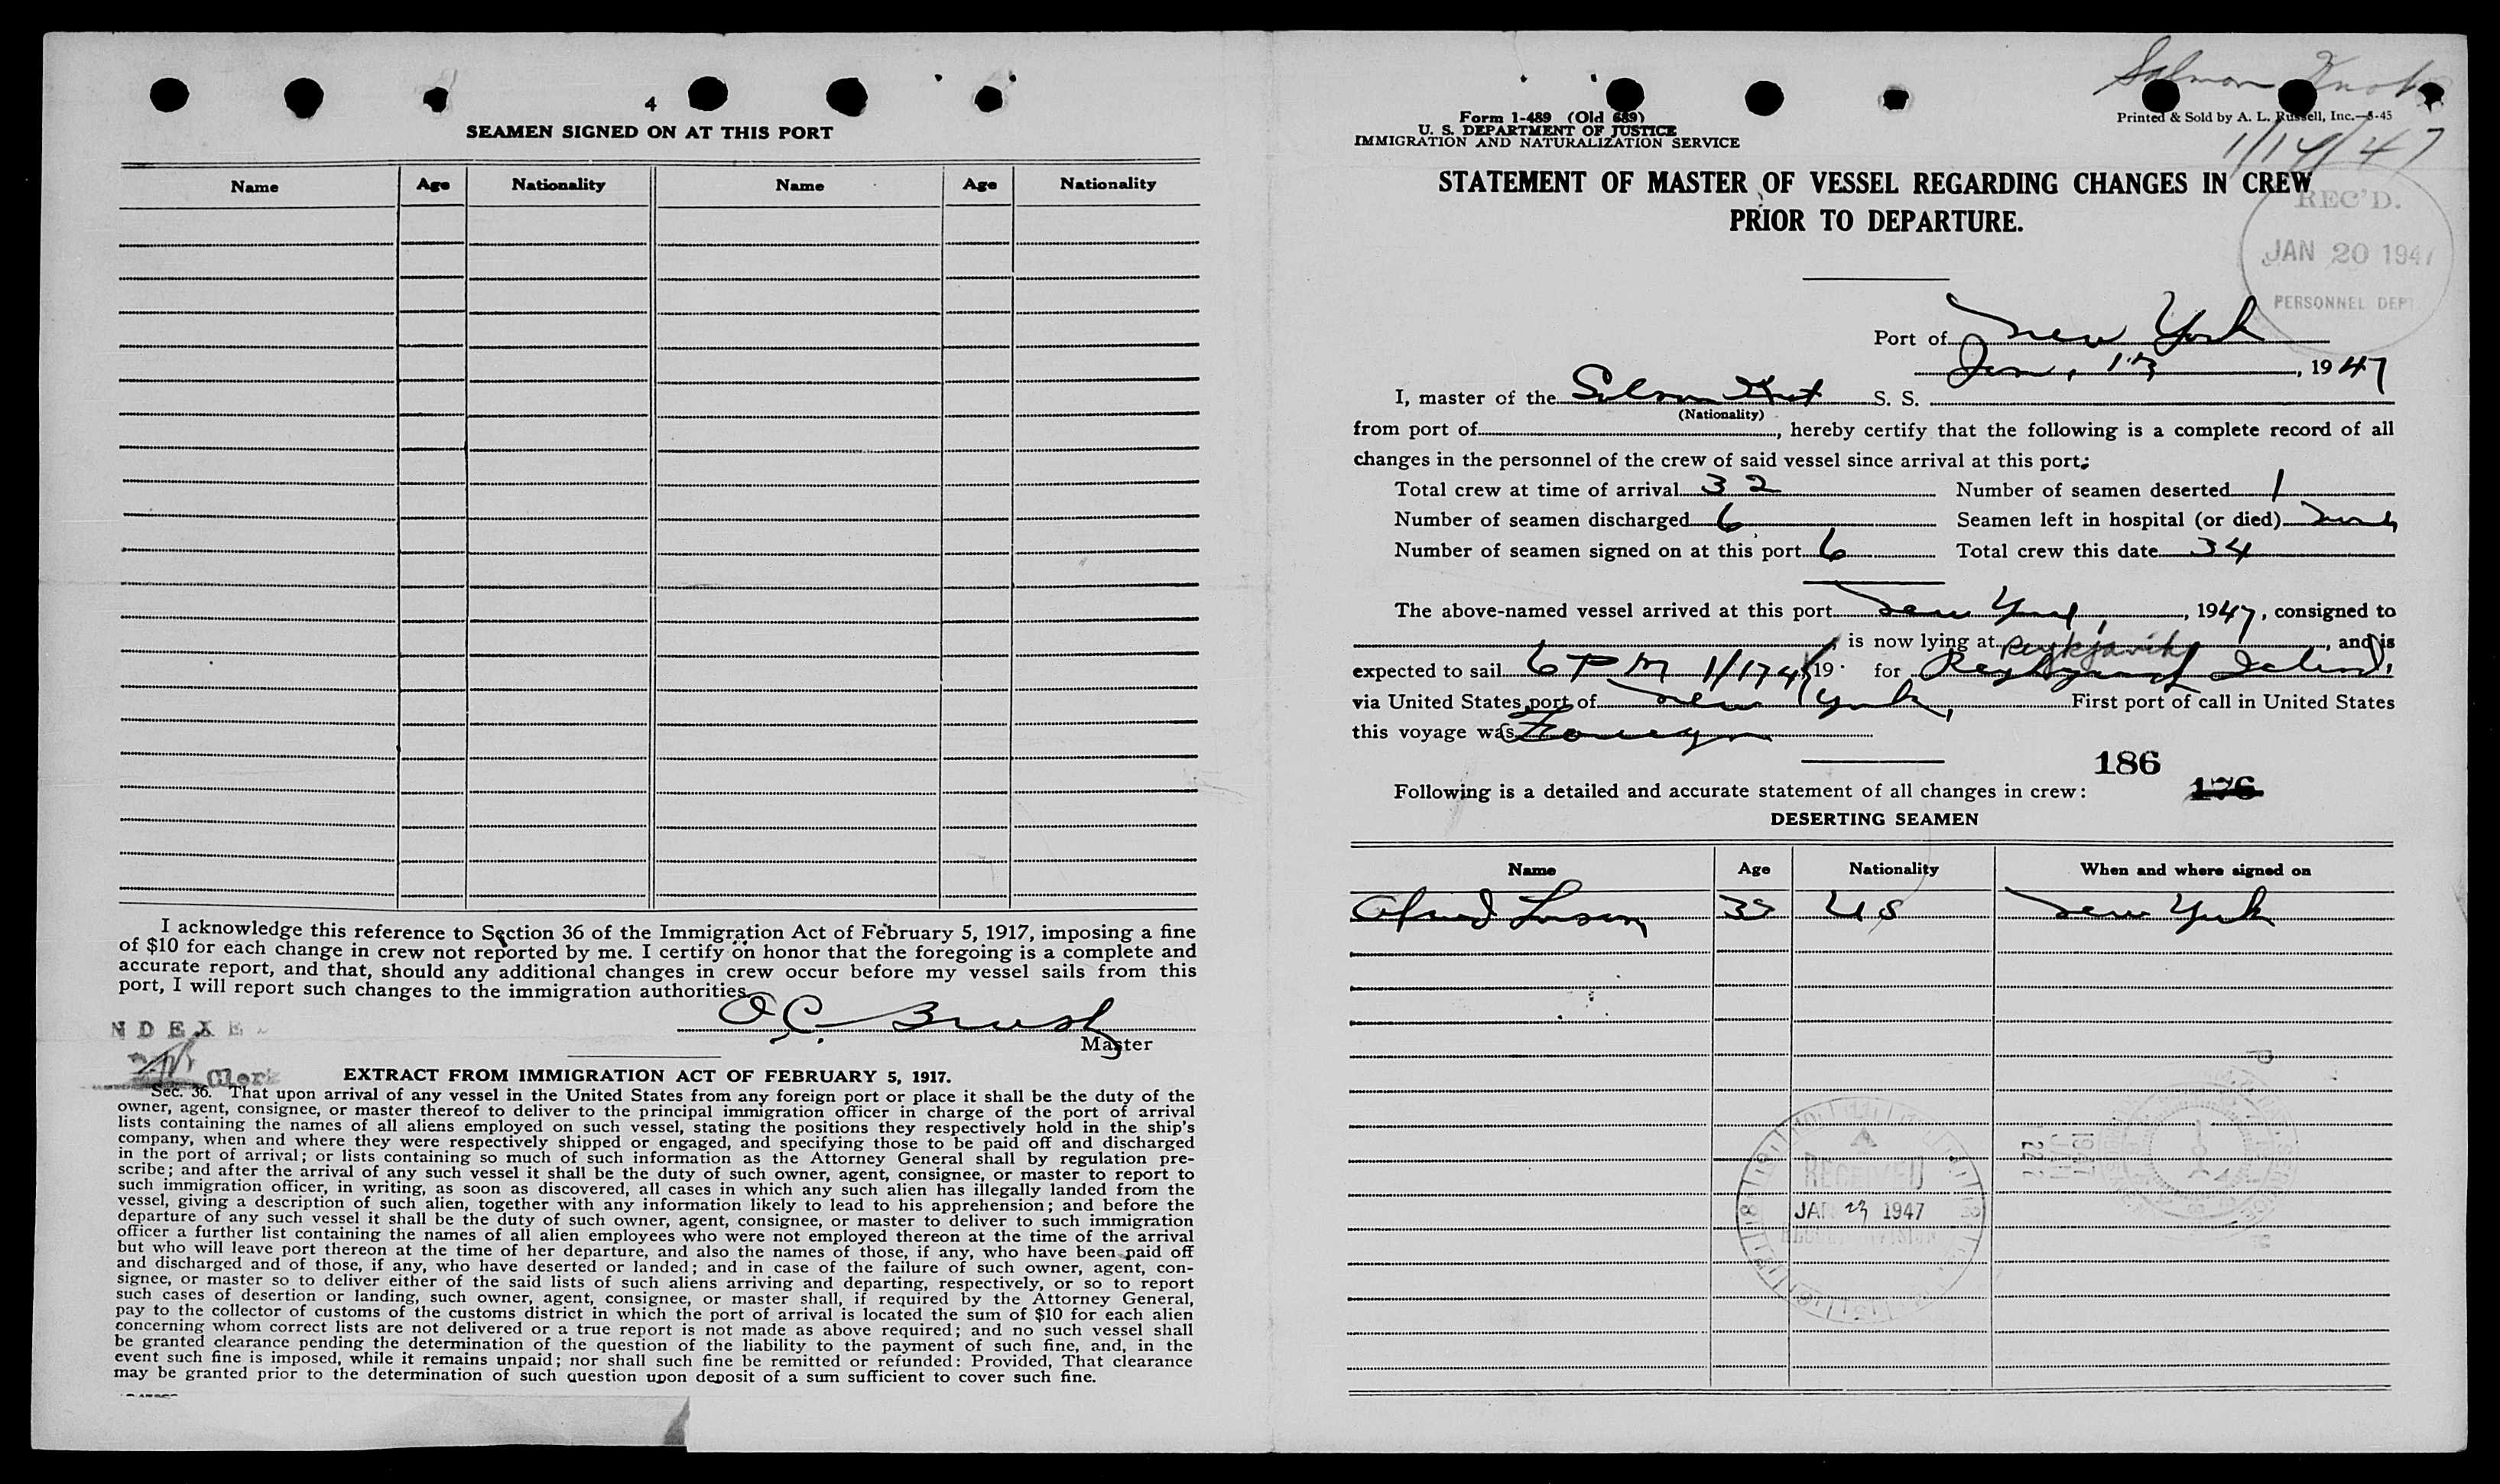 4
SEAMEN SIGNED ON AT THIS PORT
Name Age Nationality Name Age Nationality
I acknowledge this reference to Section 36 of the Immigration Act of February 5, 1917, imposing a fine
of $10 for each change in crew not reported by me. I certify on honor that the foregoing is a complete and
accurate report, and that, should any additional changes in crew occur before my vessel sails from this
port, I will report such changes to the immigration authorities.
O C. Brush
Master
NDEXE
Clerk
EXTRACT FROM IMMIGRATION ACT OF FEBRUARY 5, 1917.
Sec. 36. That upon arrival of any vessel in the United States from any foreign port or place it shall be the duty of the
owner, agent, consignee, or master thereof to deliver to the principal immigration officer in charge of the port of arrival
lists containing the names of all aliens employed on such vessel, stating the positions they respectively hold in the ship's
company, when and where they were respectively shipped or engaged, and specifying those to be paid off and discharged
in the port of arrival; or lists containing so much of such information as the Attorney General shall by regulation pre-
scribe; and after the arrival of any such vessel it shall be the duty of such owner, agent, consignee, or master to report to
such immigration officer, in writing, as soon as discovered, all cases in which any such alien has illegally landed from the
vessel, giving a description of such alien, together with any information likely to lead to his apprehension; and before the
departure of any such vessel it shall be the duty of such owner, agent, consignee, or master to deliver to such immigration
officer a further list containing the names of all alien employees who were not employed thereon at the time of the arrival
but who will leave port thereon at the time of her departure, and also the names of those, if any, who have been paid off
and discharged and of those, if any, who have deserted or landed; and in case of the failure of such owner, agent, con-
signee, or master so to deliver either of the said lists of such aliens arriving and departing, respectively, or so to report
such cases of desertion or landing, such owner, agent, consignee, or master shall, if required by the Attorney General,
pay to the collector of customs of the customs district in which the port of arrival is located the sum of $10 for each alien
concerning whom correct lists are not delivered or a true report is not made as above required; and no such vessel shall
be granted clearance pending the determination of the question of the liability to the payment of such fine, and, in the
event such fine is imposed, while it remains unpaid; nor shall such fine be remitted or refunded: Provided, That clearance
may be granted prior to the determination of such question upon deposit of a sum sufficient to cover such fine.
Salmon Knot
Form 1-489 (Old 689)
U. S. DEPARTMENT OF JUSTICE
IMMIGRATION AND NATURALIZATION SERVICE
Printed & Sold by A. L. Russell, Inc.—8-45
1/17/47
STATEMENT OF MASTER OF VESSEL REGARDING CHANGES IN CREW
PRIOR TO DEPARTURE.
REC'D.
JAN 20 1947
PERSONNEL DEPT
Port of New York
Jan, 17, 1947
I, master of the Salmon Knot S. S.
(Nationality)
from port of, hereby certify that the following is a complete record of all
changes in the personnel of the crew of said vessel since arrival at this port:
Total crew at time of arrival 32 Number of seamen deserted 1
Number of seamen discharged 6 Seamen left in hospital (or died) none
Number of seamen signed on at this port 6 Total crew this date 34
The above-named vessel arrived at this port New York, 1947, consigned to
, is now lying at Reykjavik, and is
expected to sail 6 PM 1/17 47 19 for Reykjavik Iceland,
via United States port of New York, First port of call in United States
this voyage was Foreign
186
176
Following is a detailed and accurate statement of all changes in crew:
DESERTING SEAMEN
Name Age Nationality When and where signed on
Alfred Larsen US New York
RECEIVED
JAN 23 1947
RECORD DIVISION